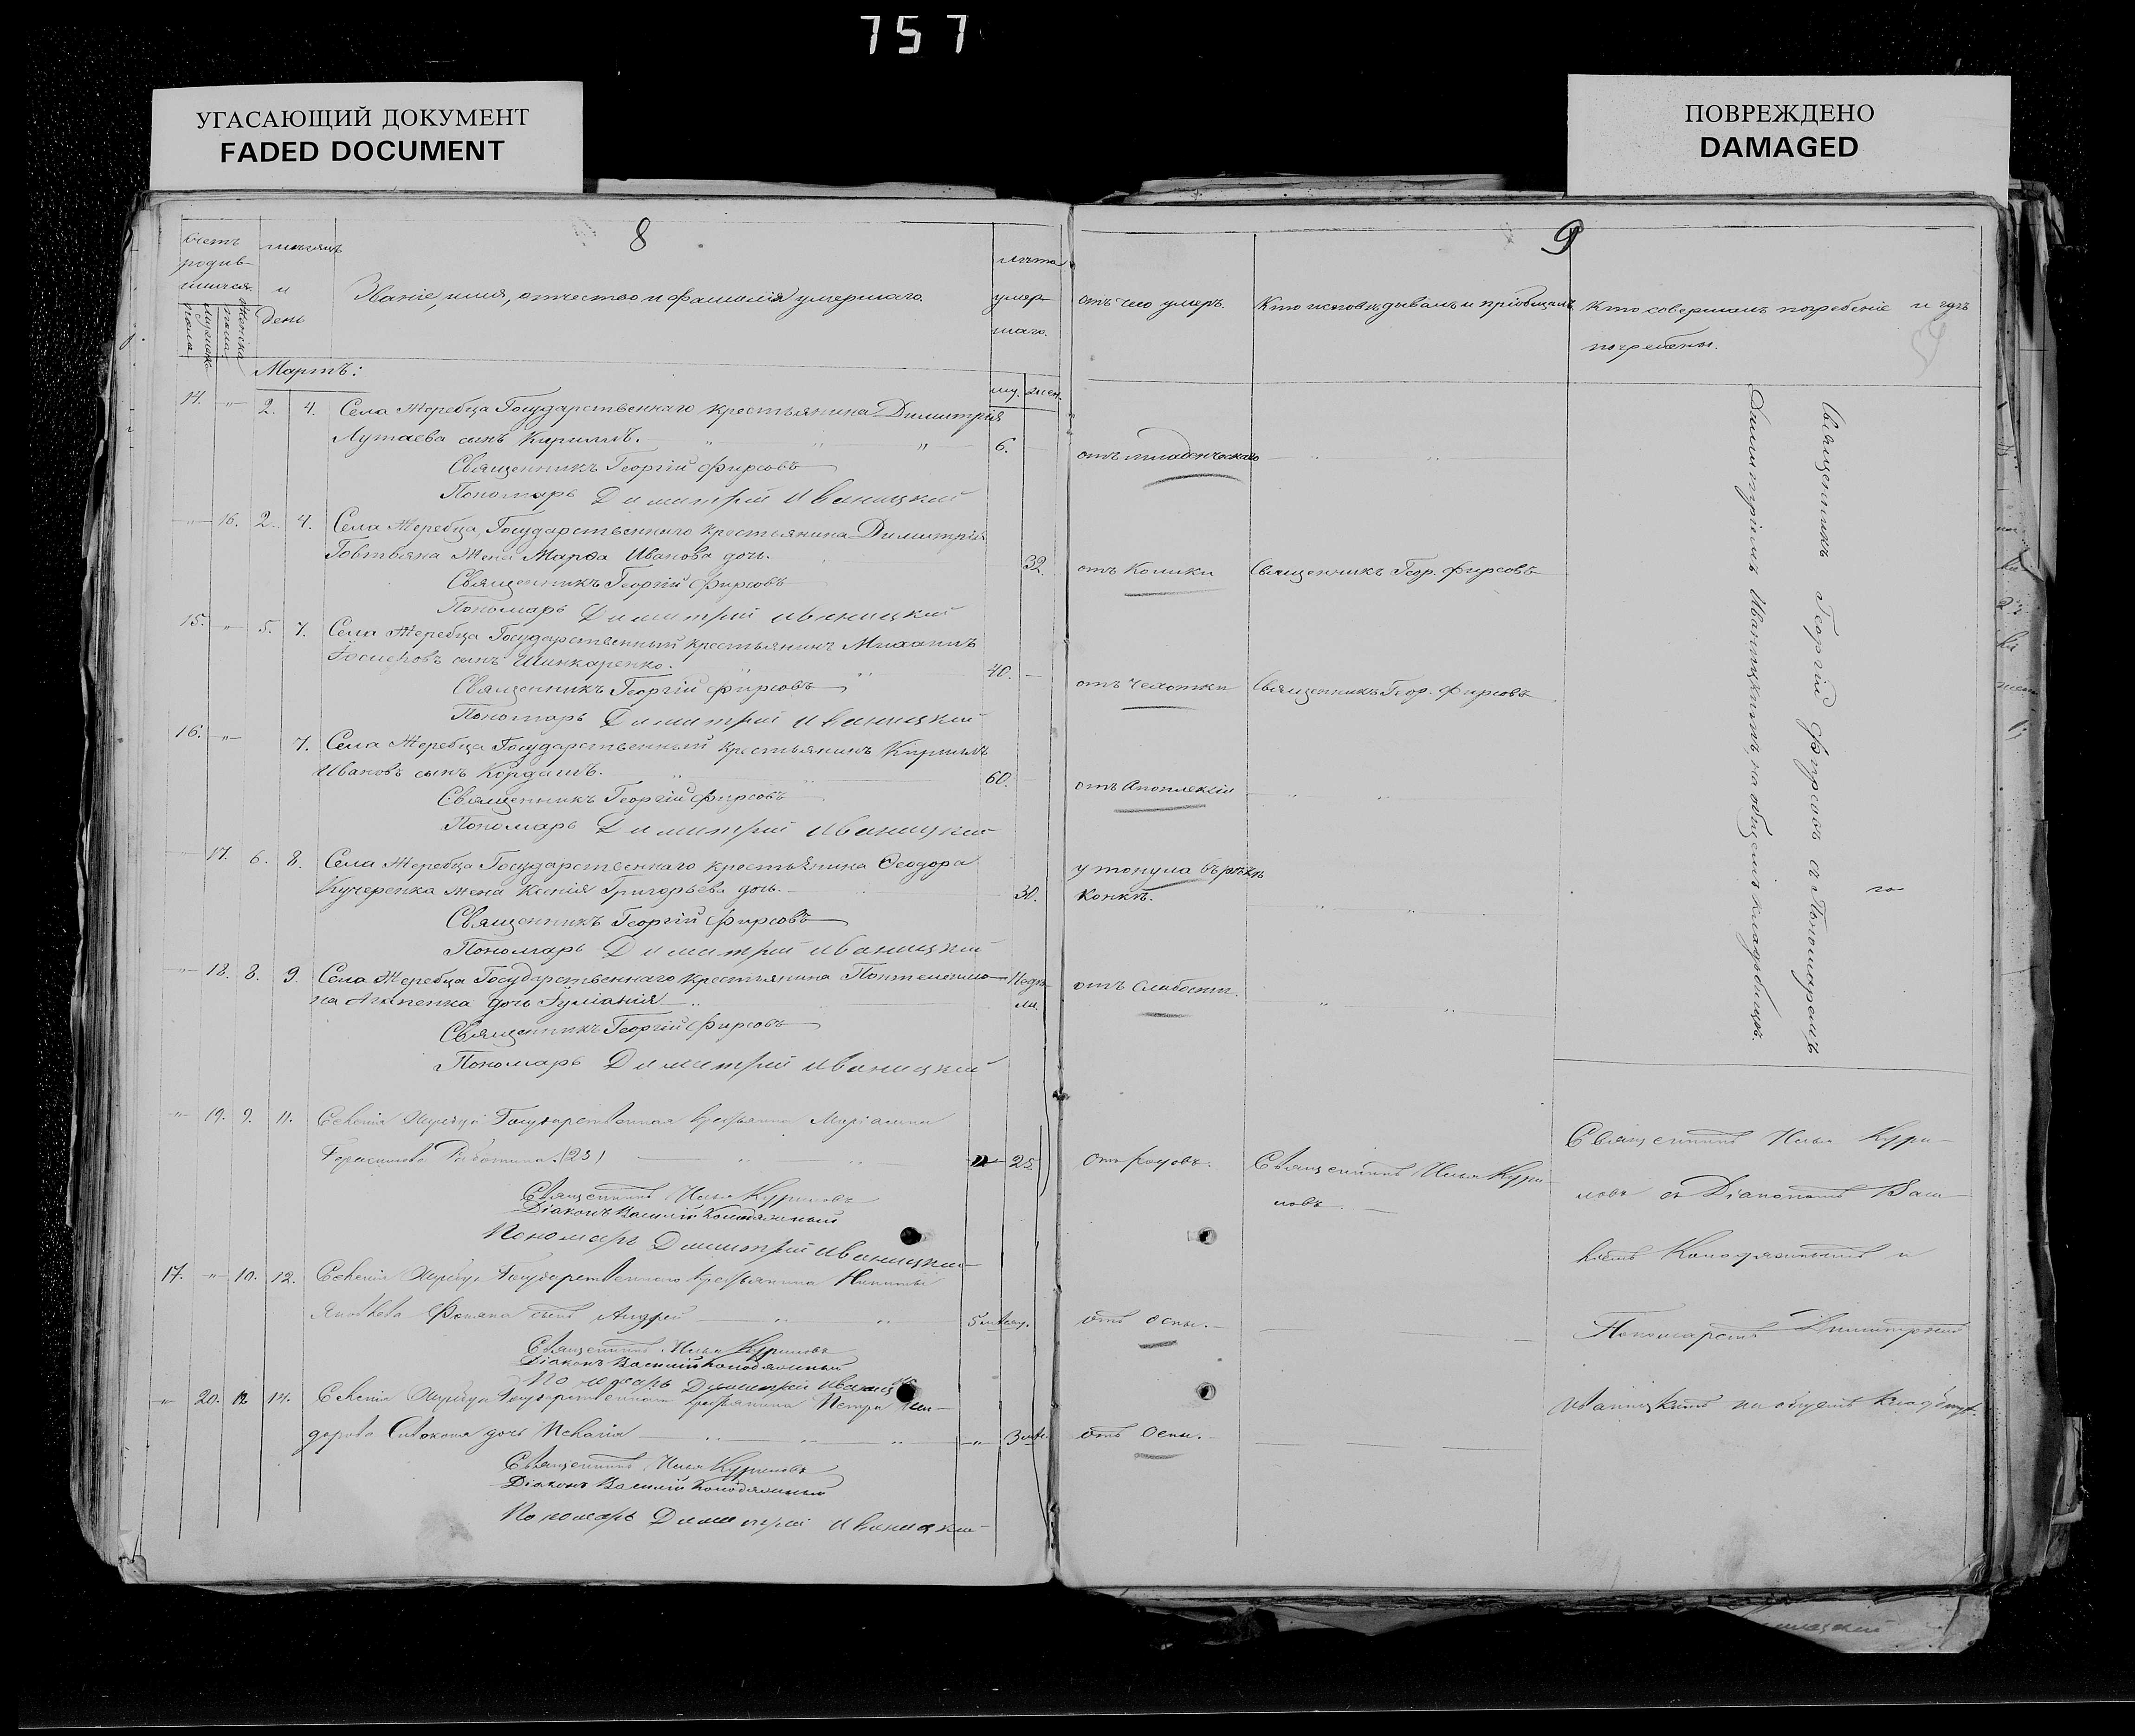 757
УГАСАЮЩИЙ ДОКУМЕНТ
FADED DOCUMENT
ПОВРЕЖДЕНО
DAMAGED
8
Счетъ родив-шихся.
мужска пола
женска пола
мѣсяцъ и день
Званіе, имя, отчество и фамилія умершаго.
лѣта умер-шаго.
Мартъ:
му. жен.
14. " 2. 4. Села Жеребца Государственнаго крестьянина Димитрія
Лутаева сынъ Кириллъ. " " " 6.
Священникъ Георгій Фирсовъ
Пономарь Димитрій Иваницкий
" 16. 2. 4. Села Жеребца, Государственнаго крестьянина Димитрія
Говтвяна жена Марфа Иванова дочь. 32.
Священникъ Георгій Фирсовъ
Пономарь Димитрий Иваницкий
15. " 5. 7. Села Жеребца Государственный крестьянинъ Михаилъ
сынъ Шинкаренко. " " 40.
Священникъ Георгій Фирсовъ
Пономарь Димитрий Иваницкий
16. " 7. Села Жеребца Государственный крестьянинъ Кириллъ
Ивановъ сынъ Кордашъ. " " 60.
Священникъ Георгій Фирсовъ
Пономарь Димитрий Иваницкий
17. 6. 8. Села Жеребца Государственнаго крестьянина Ѳеодора
Кучеренка жена Ксенія Григорьева дочь. 30.
Священникъ Георгій Фирсовъ
Пономарь Димитрий Иваницкий
" 18. 8. 9. Села Жеребца Государственнаго крестьянина Пантелеимо-
на дочь Іуліанія " Недѣ-ли.
Священникъ Георгій Фирсовъ
Пономарь Димитрий Иваницкий
" 19. 9. 11. Селенія Жеребца Государственная крестьянка Маріанна
Герасимова (25) " " 25.
Священникъ Илья Куриловъ
Діаконъ Василій Колодяжный
Пономарь Димитрий Иваницкий
17. " 10. 12. Селенія Жеребца Государственнаго крестьянина Никиты
Яковлева сынъ Андрей " " 5 мѣсяц.
Священникъ Илья Куриловъ
Діаконъ Василій Колодяжный
Пономарь Димитрий
" 20. 12. 14. Селенія Жеребца Государственнаго крестьянина Петра
дочь " " " " 3 мѣс.
Священникъ Илья Куриловъ
Діаконъ Василій Колодяжный
Пономарь Димитрій Иваницкий
9
отъ чего умеръ.
Кто исповѣдывалъ и пріобщалъ.
Кто совершалъ погребеніе и гдѣ
погребены.
отъ младенческаго " "
отъ Колики Священникъ Геор. Фирсовъ
отъ чахотки Священникъ Геор. Фирсовъ
отъ Апоплексіи " "
утонула въ рѣкѣ
Конкѣ. " "
отъ слабости. " "
Священникъ Георгій Фирсовъ съ Пономаремъ
Димитріемъ Иваницкимъ, на общемъ кладбищѣ.
отъ родовъ. Священникъ Илья Кури-
ловъ.
отъ оспы.
отъ оспы.
Священникъ Илья Кури-
ловъ съ Діакономъ Васи-
ліемъ Колодяжнымъ и
Пономаремъ Димитріемъ
Иваницкимъ на общемъ кладбищѣ.